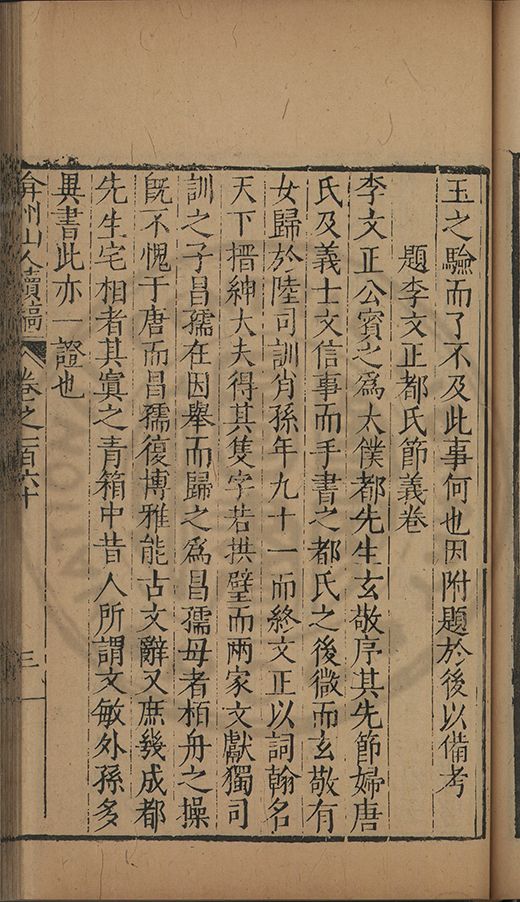 玉之驗而了不及此事何也因附題於後以備考
題李文正都氏節義卷
李文正公賓之為太僕都先生玄敬序其先節婦唐
氏及義士文信事而手書之都氏之後微而玄敬有
女歸於陸司訓肖孫年九十一而終文正以詞翰名
天下搢紳大夫得其隻字若拱璧而兩家文獻獨司
訓之子昌孺在因舉而歸之為昌孺母者栢舟之操
既不愧于唐而昌孺復博雅能古文辭又庶幾成都
先生宅相者其寘之青箱中昔人所謂文敏外孫多
異書此亦一證也
弇州山人續稿 卷之一百六十 三